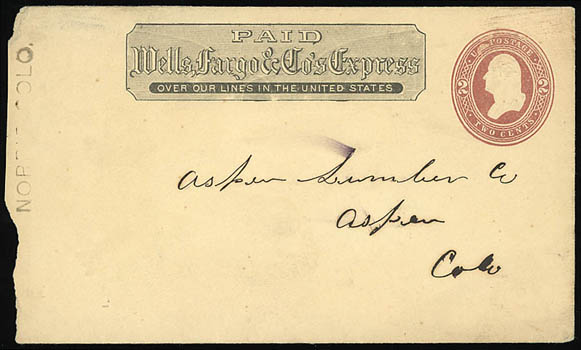 PAID
Wells, Fargo & Co's Express
OVER OUR LINES IN THE UNITED STATES
U.S. POSTAGE
2 2
TWO CENTS
COLO.
Aspen Lumber Co
Aspen
Colo